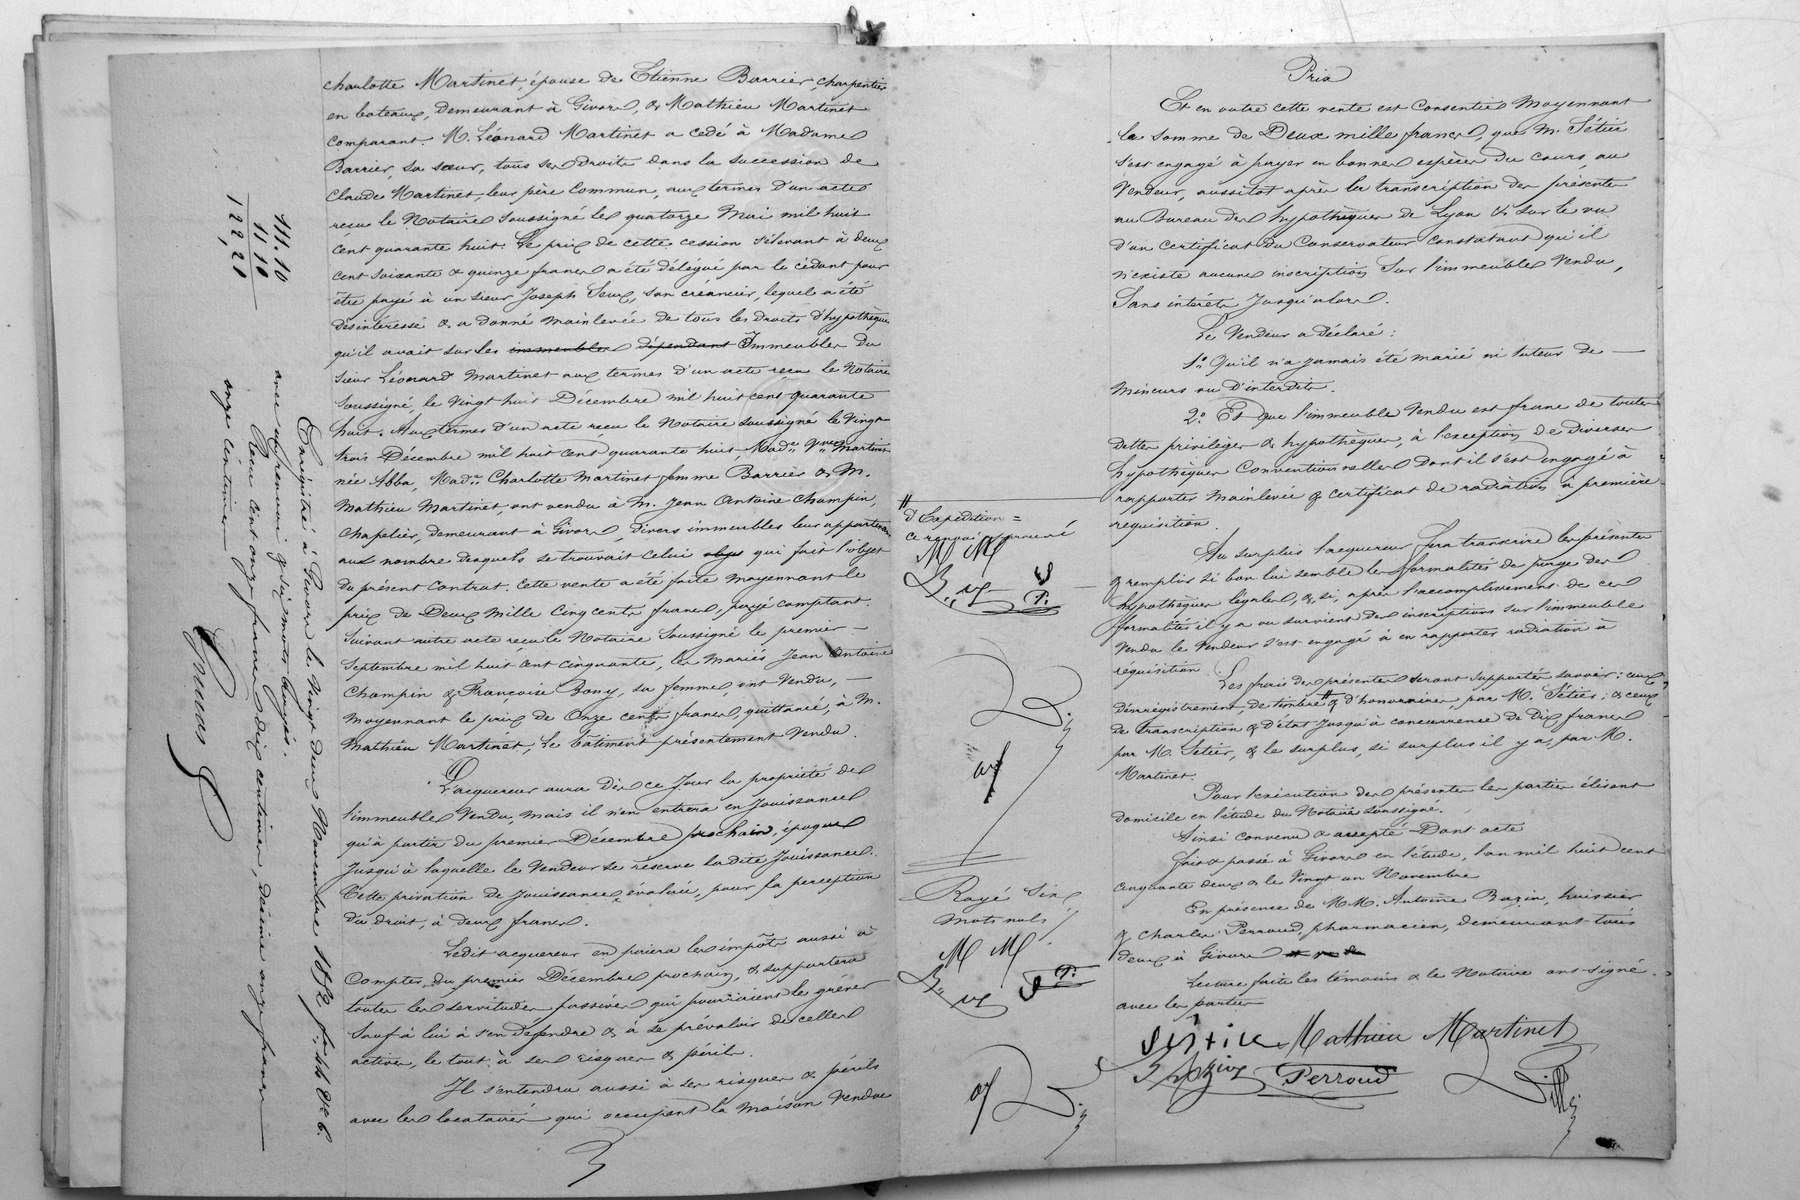 charlotte Martinet, épouse de Etienne Barrier, charpentier
en bateaux, demeurant à Givors, & Mathieu Martinet
comparant. M. Léonard Martinet a cédé à Madame
Barrier, sa sœur, tous ses Droits dans la succession de
Claude Martinet, leur père Commun, aux termes d'un acte
reçu le Notaire Soussigné le quatorze Mai mil huit
cent quarante huit. Le prix de cette cession s'élevant à deux
cent soixante & quinze francs a été délégué par le cédant pour
être payé à un sieur Joseph Seux, son créancier, lequel a été
désintéressé & a donné mainlevée de tous les droits d'hypothèque
qu'il avait sur les immeubles dépendant Immeubles du
Sieur Léonard Martinet aux termes d'un acte reçu le Notaire
Soussigné, le Vingt huit Décembre mil huit cent quarante
huit. Aux termes d'un acte reçu le Notaire soussigné le Vingt
trois Décembre mil huit cent quarante huit, Made. Vve. Martinet
née Abba, Made. Charlotte Martinet femme Barrier & M.
Mathieu Martinet, ont vendu à M. Jean Antoine Champin,
Chapelier, demeurant à Givors, divers immeubles leur appartenant
aux nombre desquels se trouvait celui objet qui fait l'objet
du présent contrat. Cette vente a été faite moyennant le
prix de Deux Mille Cinq cents francs, payé comptant.
Suivant autre acte reçu le Notaire Soussigné le premier
Septembre mil huit cent cinquante, les mariés Jean Antoine
Champin & Françoise Bony, sa femme, ont Vendu,
moyennant le prix de Onze cents francs, quittancé, à M.
Mathieu Martinet, Le bâtiment présentement Vendu.
L'acquereur aura Dès ce Jour la propriété de
l'immeuble Vendu, mais il n'en entrera en Jouissance
qu'à partir du premier Décembre prochain, époque
Jusqu'à laquelle le Vendeur se réserve ladite Jouissance.
Cette privation de Jouissance, évaluée, pour la perception
du droit, à deux francs.
Ledit acquereur en paiera les impôts aussi à
Compter du premier Décembre prochain, & supportera
toutes les servitudes passives qui pourraient le gréver
Sauf à lui à s'en défendre & à se prévaloir de celles
actives, le tout à ses risques & périls.
Il s'entendra aussi à ses risques & périls
avec les locataires qui occupent la Maison Vendue
Enregistré à Givors le Vingt deux Novembre 1852 fo. 114
Reçu cent onze francs dix centimes, décime onze francs
onze centimes
111.10
11.10
122,21
# d'Expédition =
ce renvoi approuvé
M M
P.
Rayé Six
mots nuls
M M
P.
Prix
Et en outre cette vente est Consentie Moyennant
la Somme de Deux mille francs, que M. Sétier
s'est engagé à payer en bonnes espèces du cours au
Vendeur, aussitot après la transcription des présentes
au Bureau des hypothèques de Lyon & sur le vu
d'un Certificat du Conservateur constatant qu'il
n'existe aucune inscription Sur l'immeuble Vendu,
Sans intérêts Jusqu'alors.
Le Vendeur a déclaré :
1°. Qu'il n'a jamais été marié ni tuteur de
Mineurs ou D'interdits.
2°. Et Que l'immeuble Vendu est franc de toutes
Dettes privilèges & hypothèques, à l'exception de Diverses
hypothèques Conventionnelles Dont il s'est engagé à
rapporter Mainlevée & certificat de radiation à première
requisition.
Au surplus l'acquereur fera transcrire les présentes
& remplir si bon lui semble les formalités de purge des
hypothèques légales, &, si, après l'accomplissement de ces
formalités il y a ou survient des inscriptions sur l'immeuble
Vendu le Vendeur s'est engagé à en rapporter radiation à
réquisition.
Les frais des présentes seront supportés savoir : ceux
d'enregistrement, de timbre # & d'honoraires, par M. Sétier; & ceux
de transcription & d'état Jusqu'à concurrence de Dix francs
par M. Sétier, & le surplus, si surplus il y a, par M.
Martinet.
Pour l'exécution des présentes les parties élisent
domicile en l'étude du Notaire Soussigné.
Ainsi convenu & accepté. Dont acte
fait & passé à Givors en l'étude, l'an mil huit cent
cinquante deux & le Vingt un Novembre
En présence de M.M. Antoine Bazin, huissier
& Charles Perroud, pharmacien, demeurant tous
deux à Givors
Lecture faite les témoins & le Notaire ont signé
avec les parties
Mathieu Martinet
Bazin
Perroud